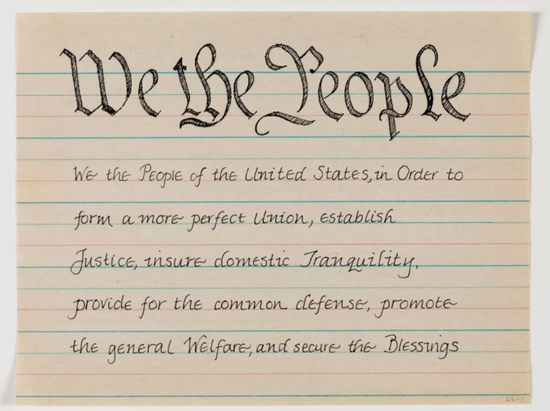 We the People
We the People of the United States, in Order to
form a more perfect Union, establish
Justice, insure domestic Tranquility,
provide for the common defense, promote
the general Welfare, and secure the Blessings